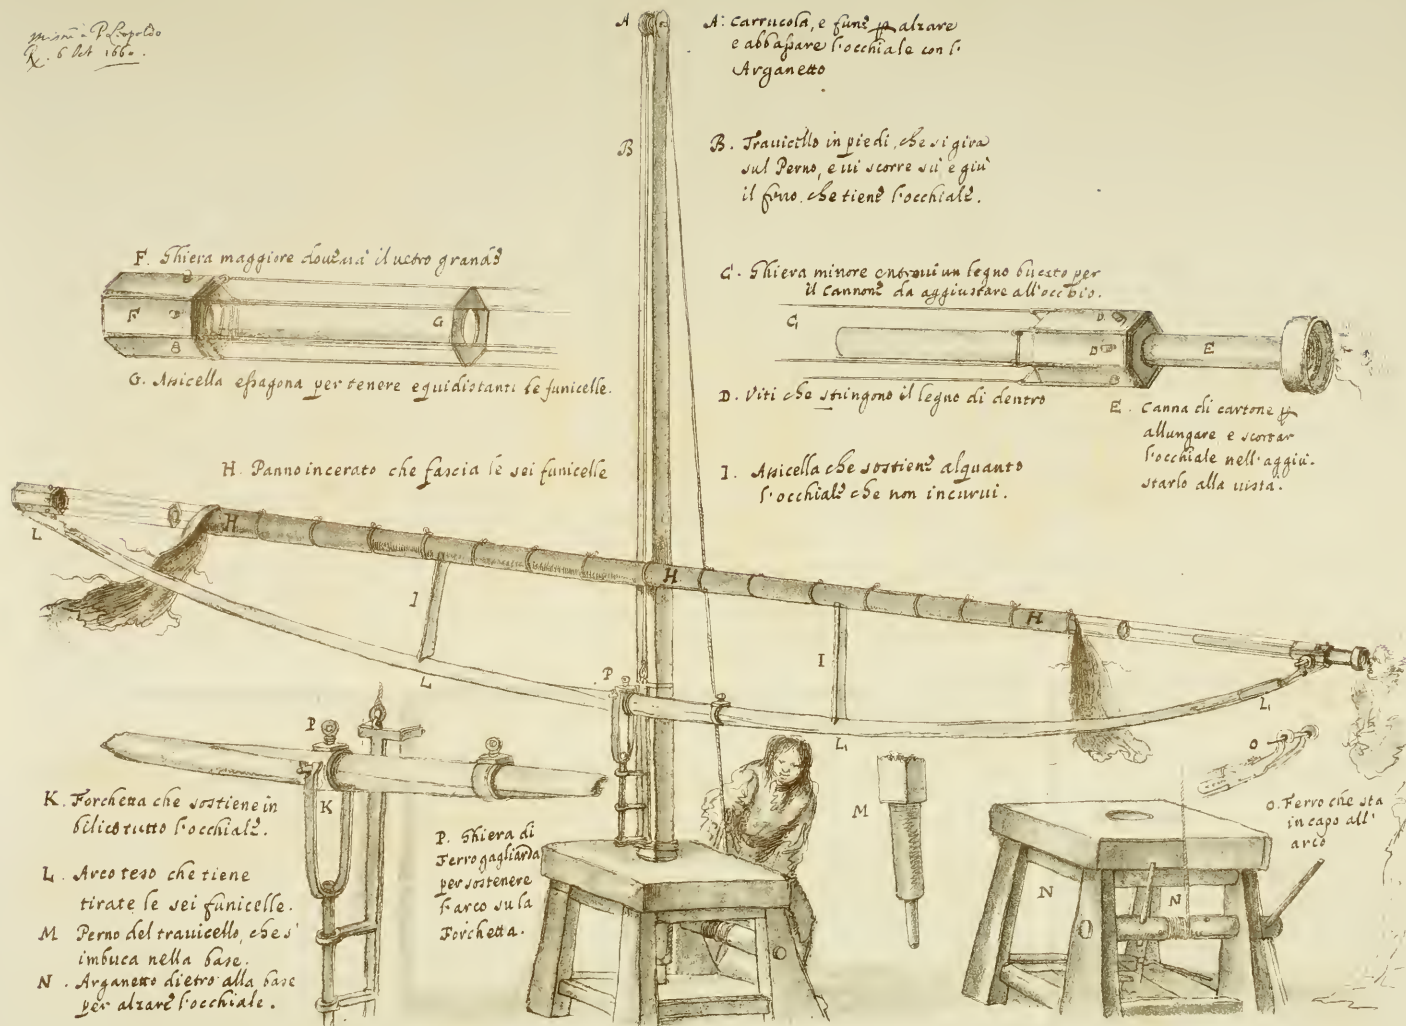 6 Ott 1660.
A
A. Carrucola, e fune p alzare
e abbassare l'occhiale con l'
Arganetto
B
B. Trauicello in piedi, che si gira
sul Perno, e ui scorre sù e giù
il ferro che tiene l'occhiale.
F. Ghiera maggiore doue sarà il uetro grande
F
G
G. Assicella essagona per tenere equidistanti le funicelle.
C. Ghiera minore entroui un legno bucato per
il Cannone da aggiustare all'occhio.
C
D
D
E
D. Viti che stringono il legno di dentro
E. Canna di cartone p
allungare e scortar
l'occhiale nell'aggiu.
starlo alla uista.
H. Panno incerato che fascia le sei funicelle
I. Assicella che sostiene alquanto
l'occhiale che non incurui.
L
H
I
L
H
H
I
L
L
P
P
K
K. Forchetta che sostiene in
bilico tutto l'occhiale.
L. Arco teso che tiene
tirate le sei funicelle.
M Perno del trauicello, che s'
imbuca nella base.
N. Arganetto dietro alla base
per alzare l'occhiale.
P. Ghiera di
Ferro gagliarda
per sostenere
l'arco su la
Forchetta.
M
N
N
O
O. Ferro che sta
in capo all'
arco